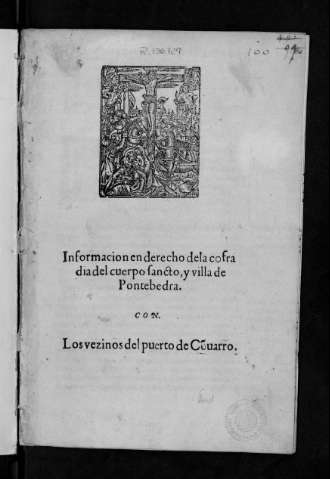 100
Informacion en derecho dela cofra
dia del cuerpo sancto, y villa de
Pontebedra.
CON.
Los vezinos del puerto de Cõuarro.